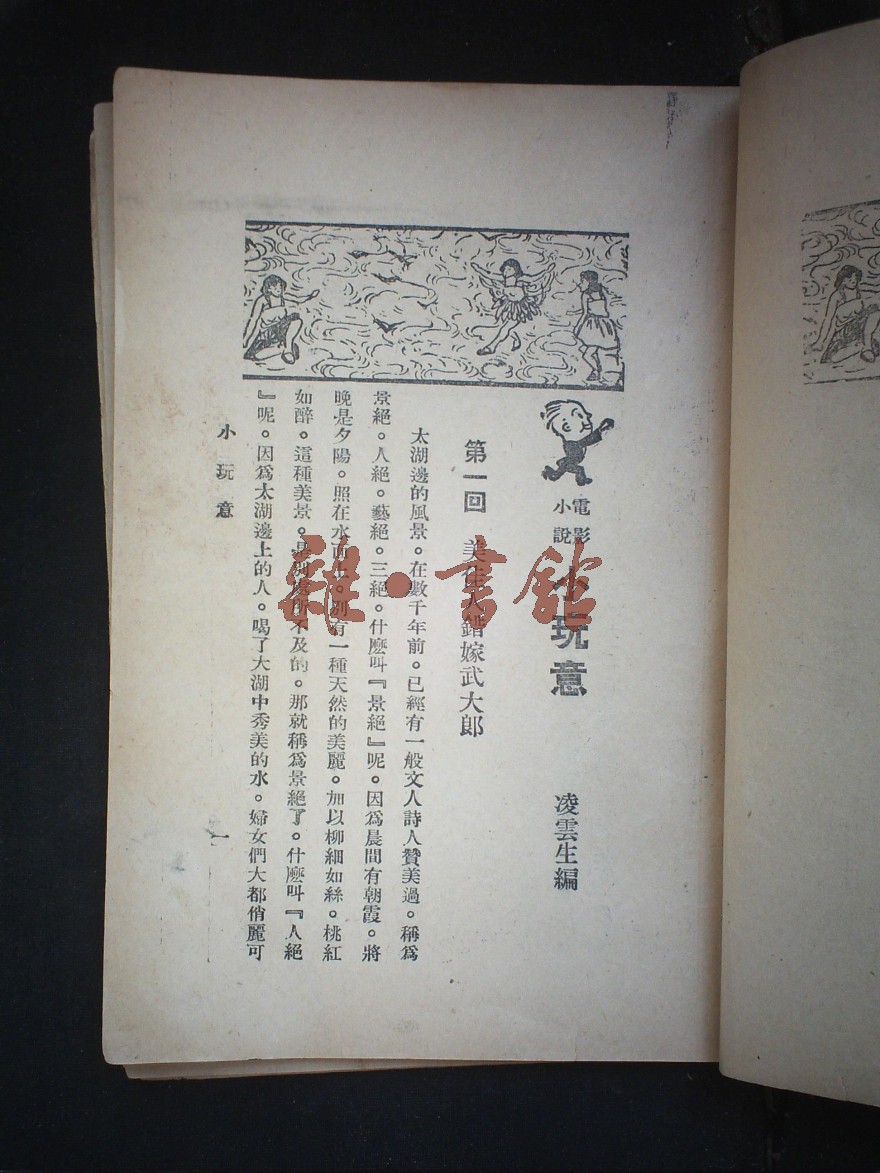 電影
小說
小玩意
凌雲生編
第一回　美佳人錯嫁武大郎
太湖邊的風景。在數千年前。已經有一般文人詩人贊美過。稱爲
景絕。人絕。藝絕。三絕。什麽叫『景絕』呢。因爲晨間有朝霞。將
晚是夕陽。照在水面上。別有一種天然的美麗。加以柳細如絲。桃紅
如醉。這種美景。是別處所不及的。那就稱爲景絕了。什麽叫『人絕
』呢。因爲太湖邊上的人。喝了大湖中秀美的水。婦女們大都俏麗可
小玩意
一
雜·書館